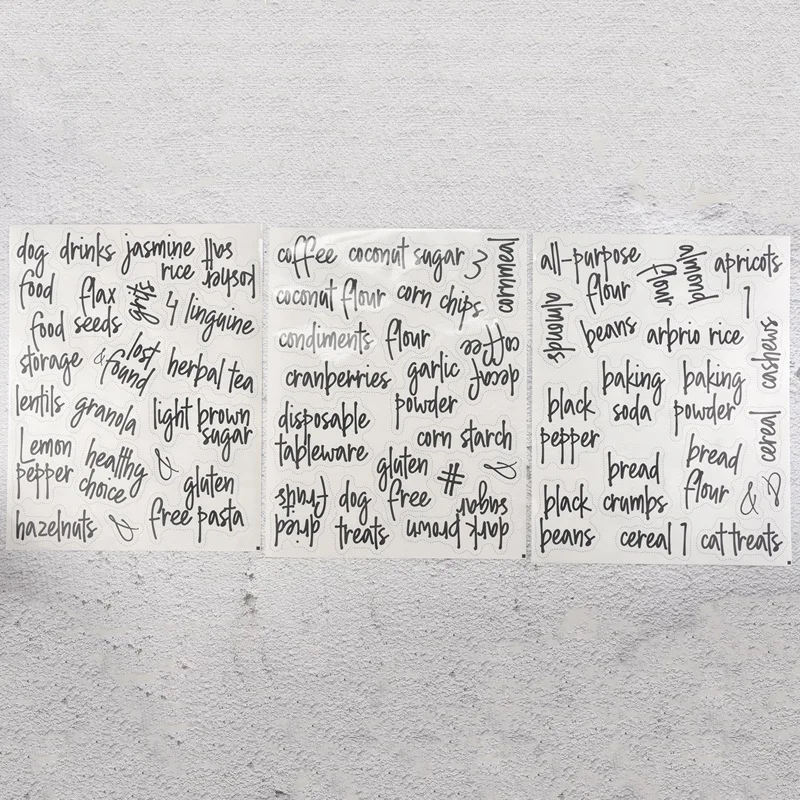 dog
food
drinks
jasmine
rice
kosher
salt
flax
seeds
grits
4
linguine
food
storage
&
lost
&found
herbal tea
lentils
granola
light brown
sugar
Lemon
pepper
healthy
choice
&
gluten
free pasta
hazelnuts
&
coffee
coconut sugar
3
cornmeal
coconut flour
corn chips
condiments
flour
decaf
coffee
cranberries
garlic
powder
disposable
tableware
corn starch
gluten
free
#
&
dried
fruits
dog
treats
dark brown
sugar
all-purpose
flour
almond
flour
apricots
1
almonds
beans
arbrio rice
cashews
baking
soda
baking
powder
black
pepper
cereal
bread
crumbs
bread
flour
&
&
black
beans
cereal
1
cat treats